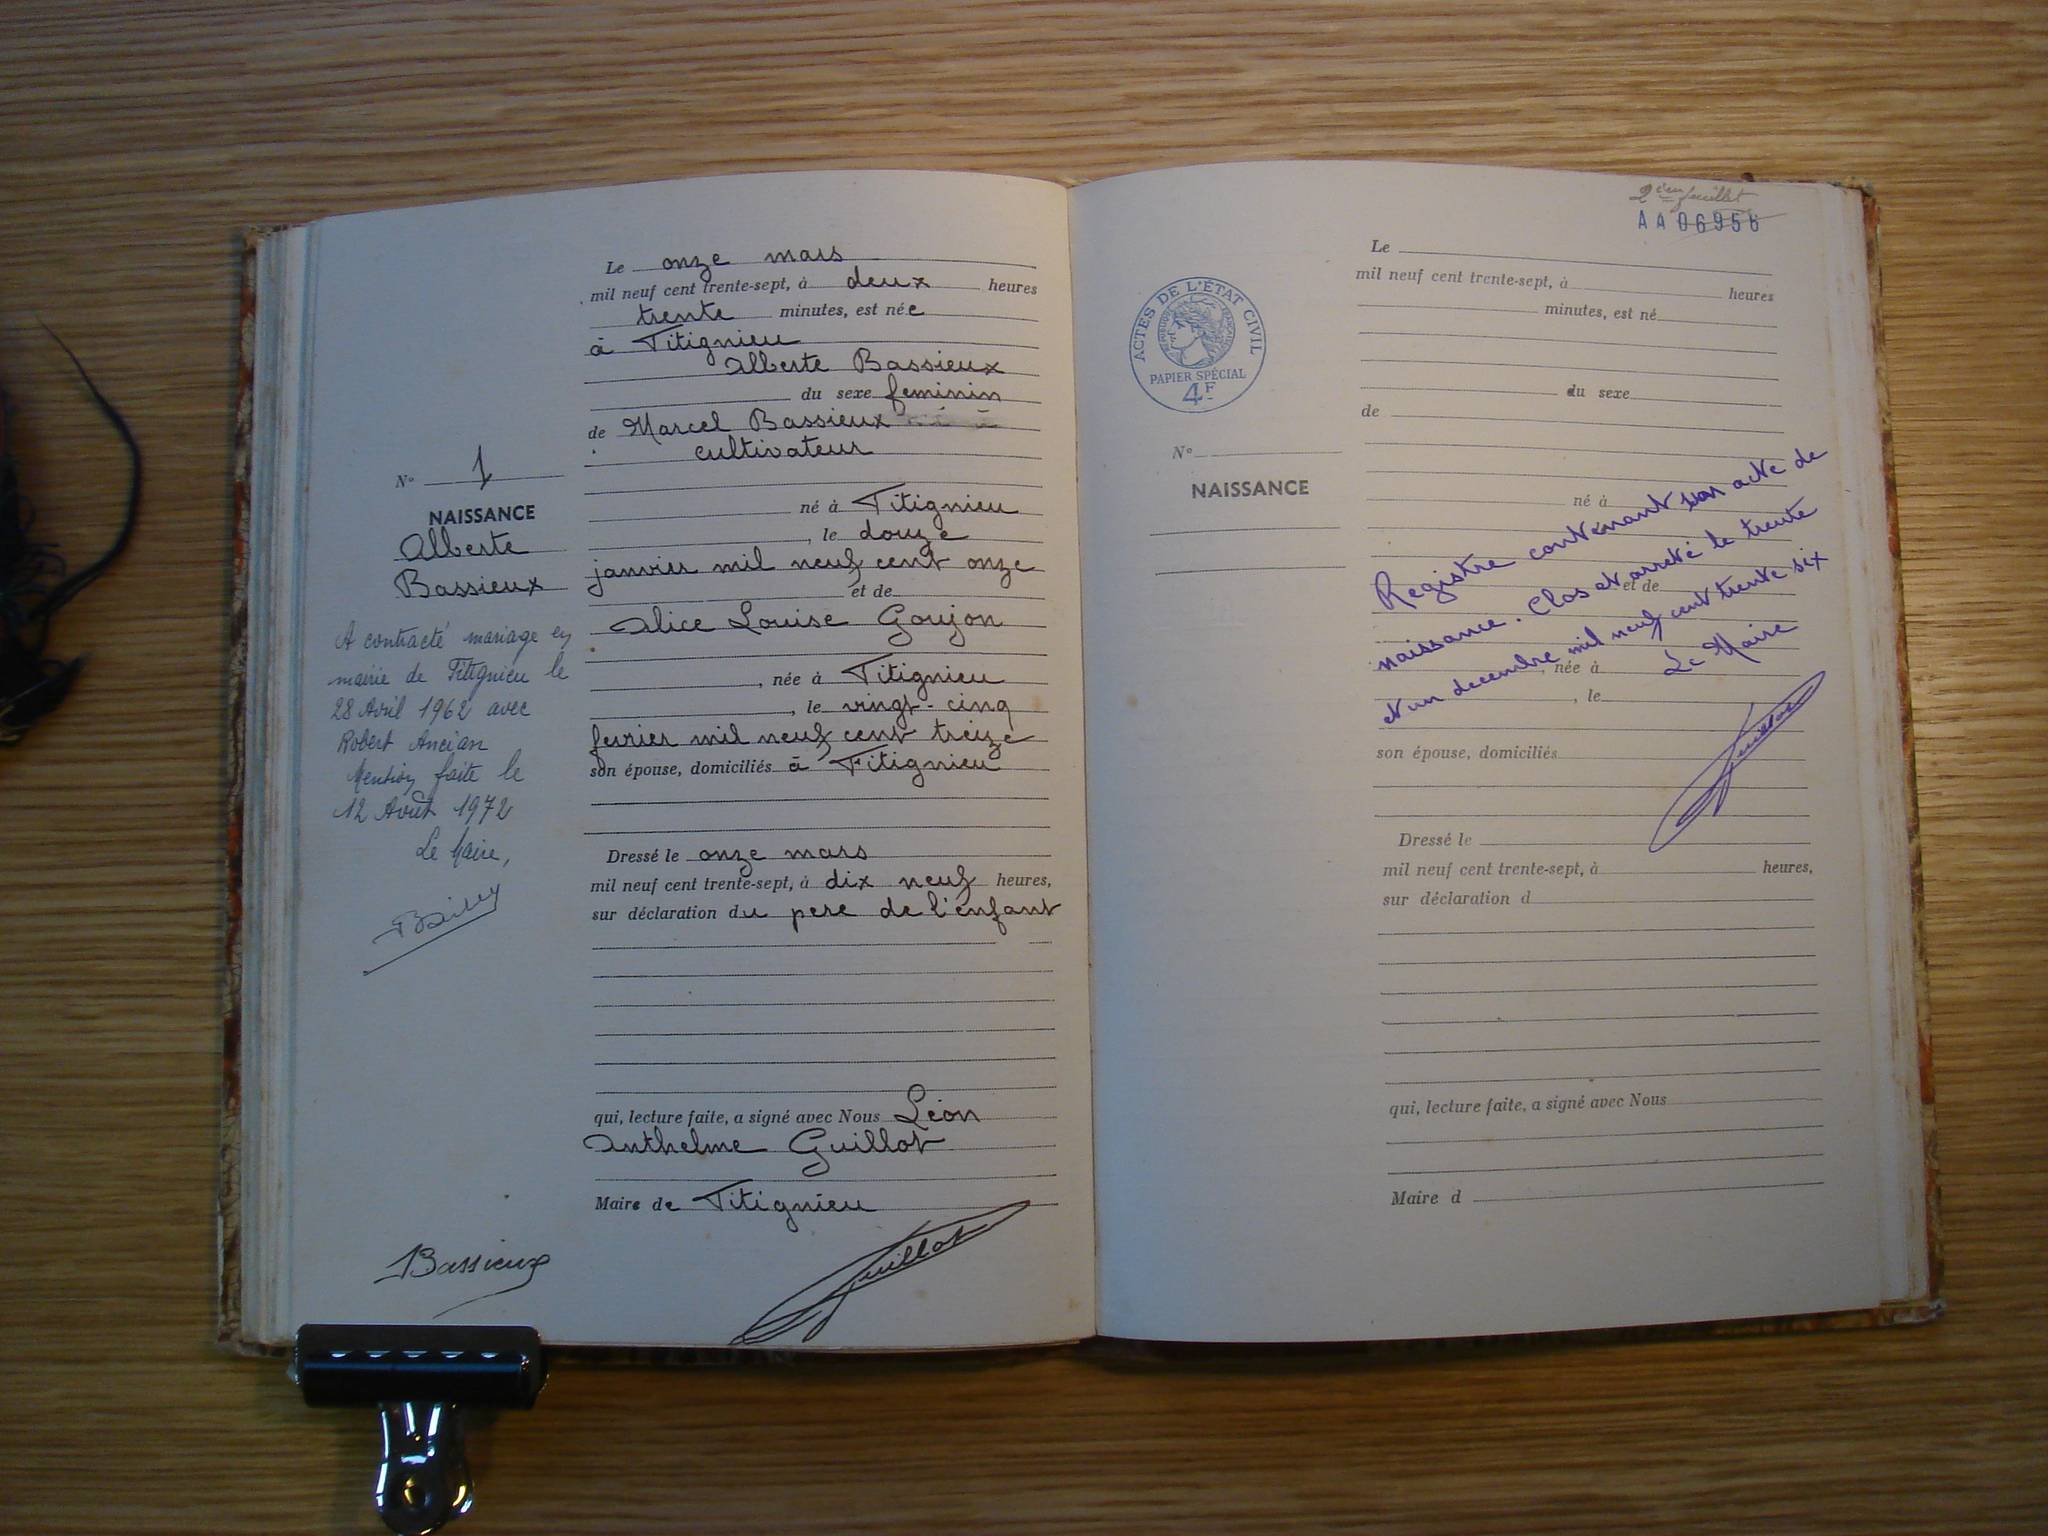 Le onze mars
mil neuf cent trente-sept, à deux heures
trente minutes, est née
à Titignieu
Alberte Bassieux
du sexe feminin
de Marcel Bassieux
cultivateur
né à Titignieu
, le douze
janvier mil neuf cent onze
et de
Alice Louise Goujon
, née à Titignieu
, le vingt-cinq
fevrier mil neuf cent treize
son épouse, domiciliés à Titignieu
Dressé le onze mars
mil neuf cent trente-sept, à dix neuf heures,
sur déclaration du pere de l'enfant
qui, lecture faite, a signé avec Nous Léon
Anthelme Guillot
Maire de Titignieu
Guillot
N° 1
NAISSANCE
Alberte
Bassieux
A contracté mariage en
mairie de Titignieu le
28 Avril 1962 avec
Robert Ancian
Mention faite le
12 Août 1972
Le Maire,
Bassieux
2ième feuillet
AA 06956
ACTES DE L'ÉTAT CIVIL
RÉPUBLIQUE FRANÇAISE
PAPIER SPÉCIAL
4F
N°
NAISSANCE
Le
mil neuf cent trente-sept, à heures
minutes, est né
du sexe
de
né à
et de
, née à
, le
son épouse, domiciliés
Registre contenant un acte de
naissance. Clos et arreté le trente
et un decembre mil neuf cent trente six
Le Maire
Guillot
Dressé le
mil neuf cent trente-sept, à heures,
sur déclaration d
qui, lecture faite, a signé avec Nous
Maire d